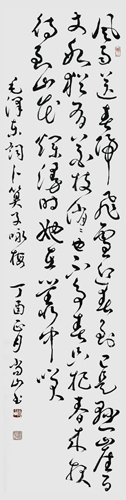 风雨送春归飞雪迎春到已是悬崖百
丈冰犹有花枝俏俏也不争春只把春来报
待到山花烂漫时她在丛中笑
毛泽东词卜算子咏梅 丁酉正月